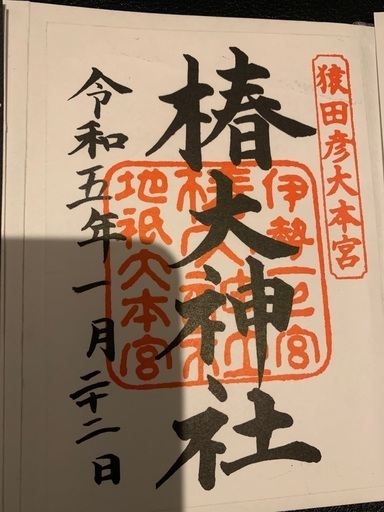 猿田彦大本宮
椿大神社
伊勢一之宮
地祇大本宮
令和五年一月二十二日